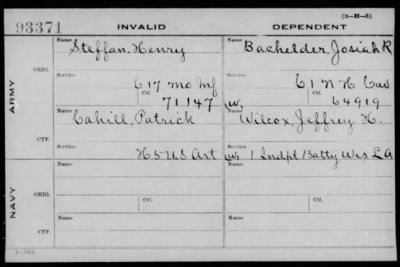 93371 INVALID DEPENDENT (3-38-5)
ARMY
ORIG.
Name Steffan, Henry Name Bachelder, Josiah R
Service C 17 Mo Inf Service C 1 N H Cav
Ctf. 71147 W, Ctf. 64919
CTF.
Name Cahill, Patrick Name Wilcox, Jeffrey H.
Service H 5 U S Art Service W, 1 Indpt Batty Wis L A
NAVY
ORIG.
Name Name
Service Service
Ctf. Ctf.
CTF.
Name Name